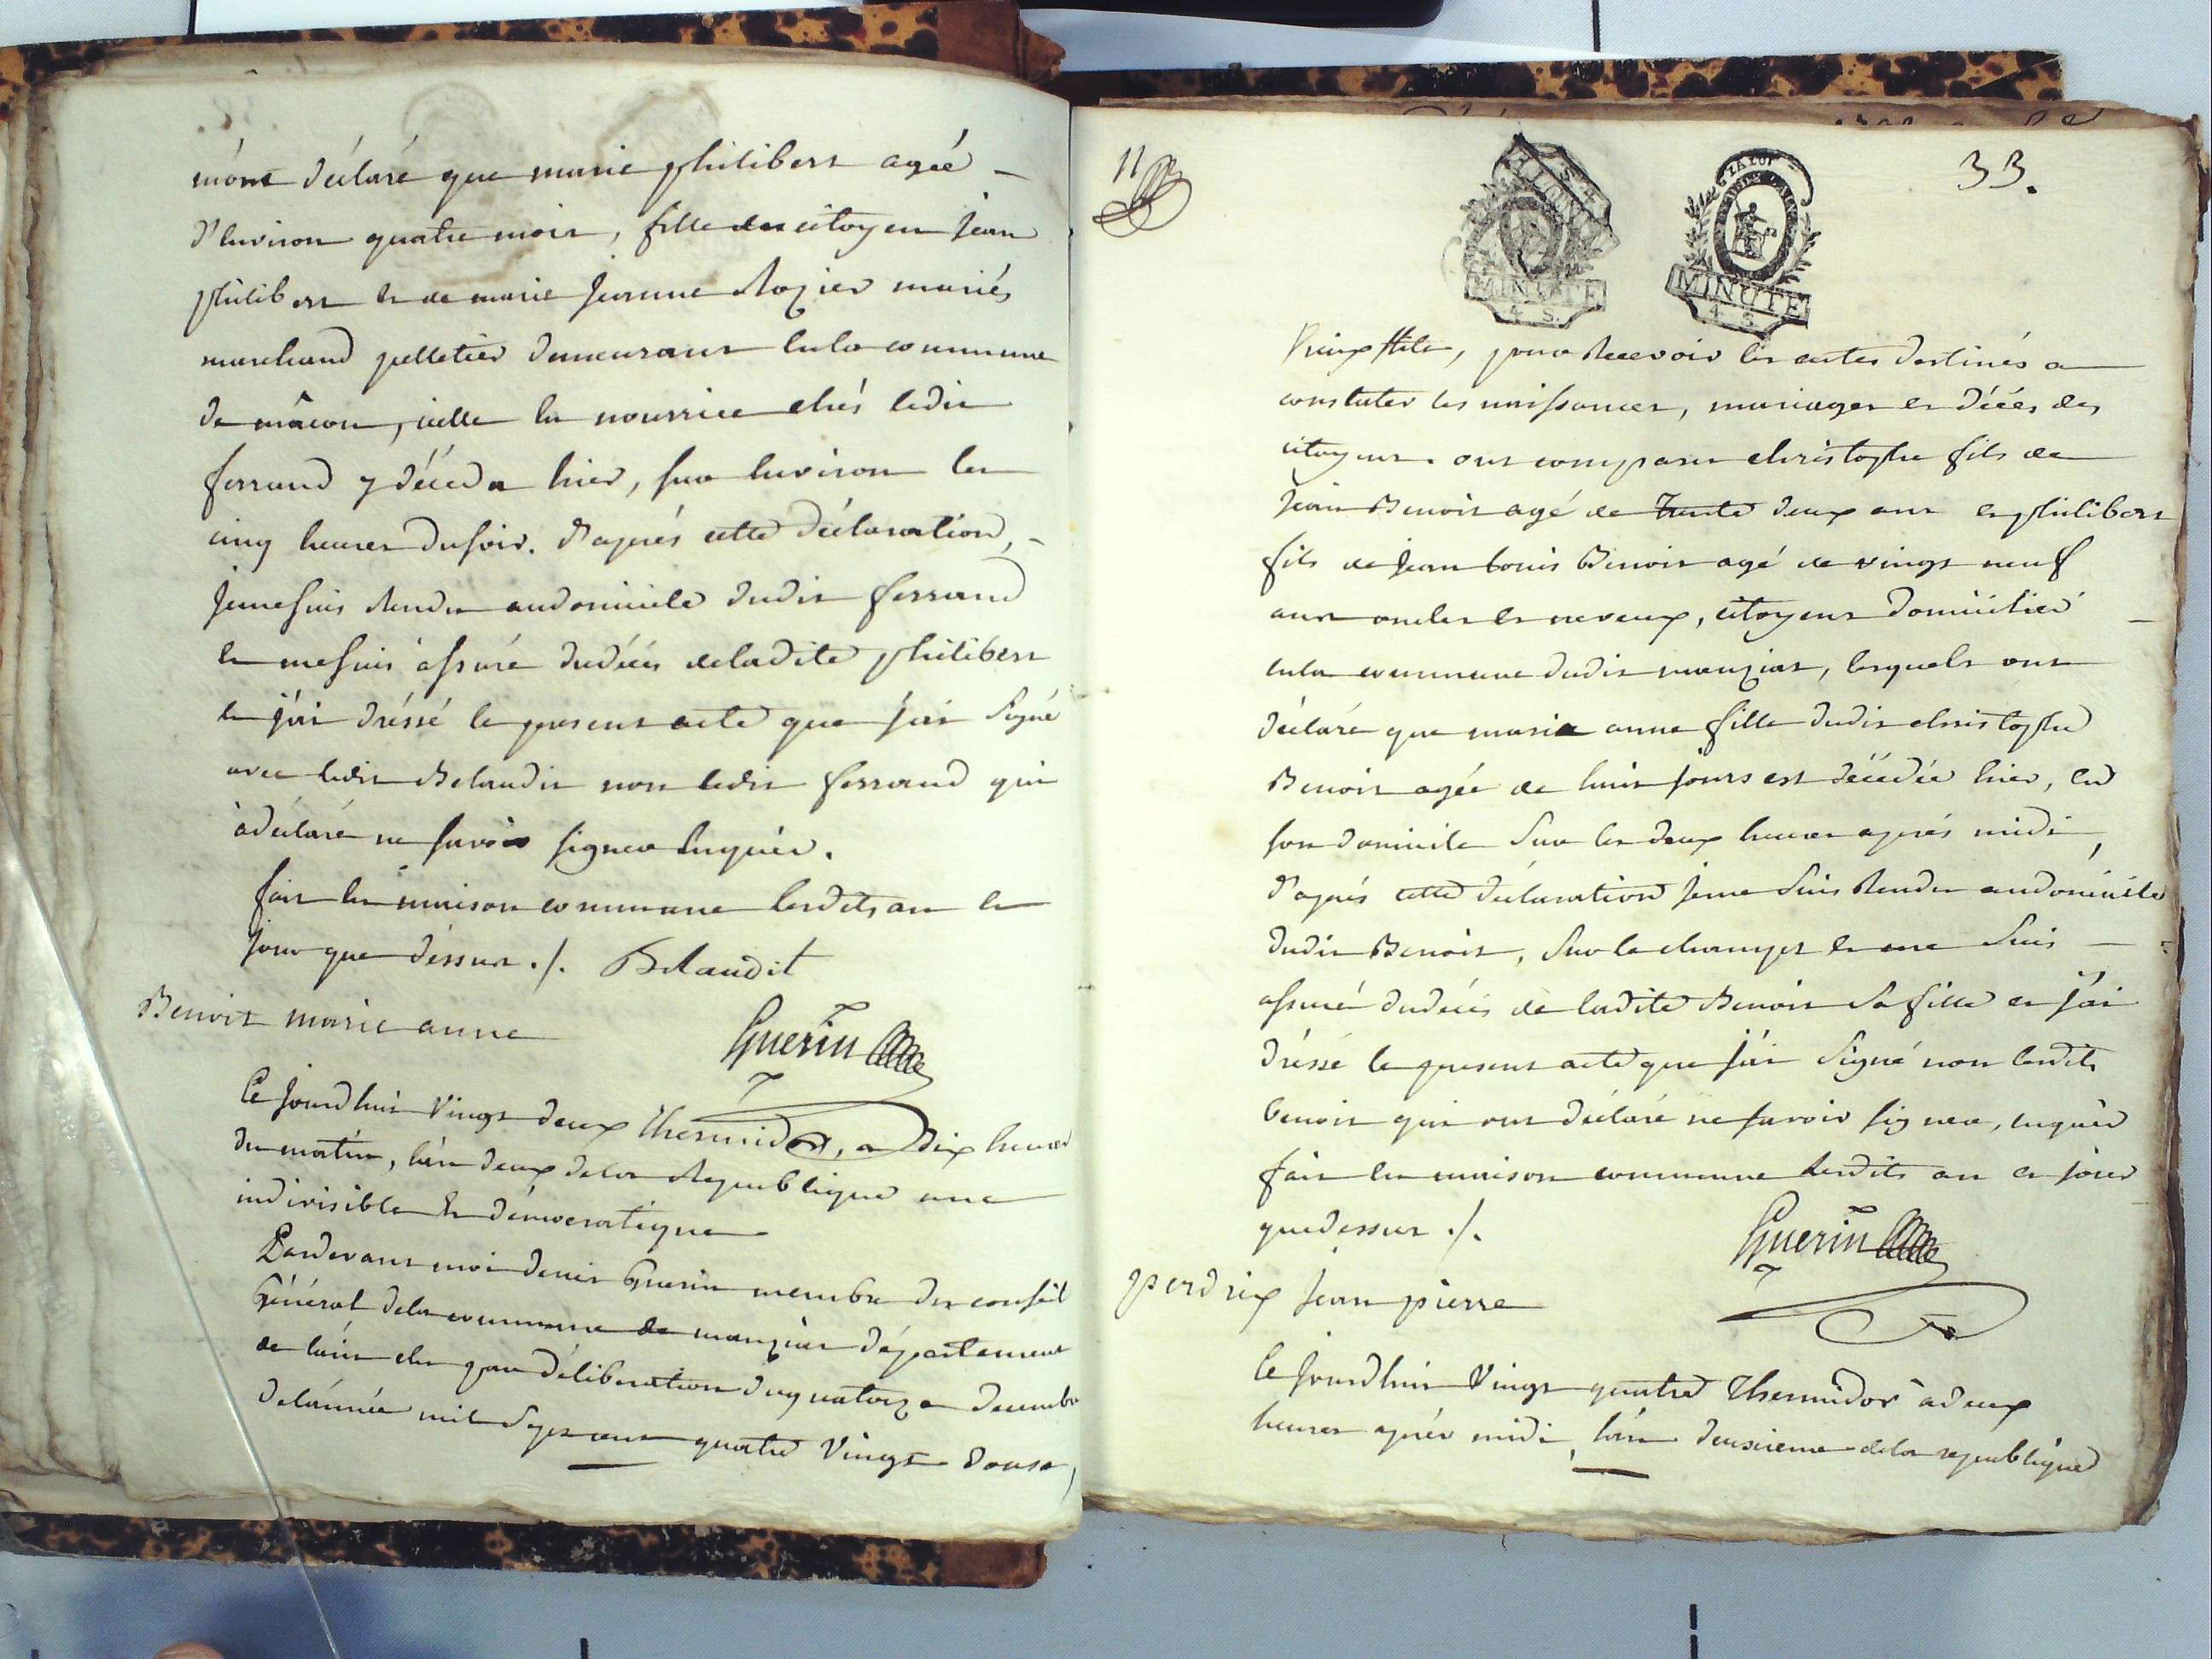 m'ont déclaré que marie philibert agée
d'environ quatre mois, fille des citoyen jean
philibert et de marie jeanne Rozier mariés
marchand pelletier demeurant en la commune
de mâcon, icelle en nourrice chés ledit
ferrand y déceda hier, sur environ les
cinq heures du soir. d'aprés cette déclaration,
je me suis rendu au domicile dudit ferrand
et me suis assuré du décés de ladite philibert
et j'ai dréssé le present acte que j'ai signé
avec ledit Belaudit non ledit ferrand qui
à déclaré ne savoir signer enquis.
fait en maison commune lesdits an et
jour que déssus ./. Belaudit
Benoit marie anne
Guerin
Ce jourd'hui vingt deux thermidor, a dix heures
du matin, l'an deux de la Republique une
indivisible et démocratique
Pardevant moi denis Guerin membre du conseil
Général de la commune de manziat département
de l'ain elu par déliberation du quatorze decembre
de l'année mil sept cent quatre vingt douse,
11
33.
MINUTE
4 S.
MINUTE
4 S.
vieux stile, pour recevoir les actes destinés a
constater les naissances, mariages et décés des
citoyens. ont comparu christophe fils de
jean Benoit agé de trente deux ans et philibert
fils de jean louis Benoit agé de vingt neuf
ans oncles et neveux, citoyens domicilié
en la commune dudit manziat, lesquels ont
déclaré que marie anne fille dudit christophe
Benoit agée de huit jours est décedée hier, en
son domicile sur les deux heures aprés midi,
d'aprés cette déclaration je me suis rendu au domicile
dudit Benoit, sur le champt et me suis
assuré du décés de ladite Benoit sa fille et j'ai
dréssé le present acte que j'ai signé non lesdits
benoit qui ont déclaré ne savoir signer, enquis
fait en maison commune lesdits an et jour
que dessus ./.
Guerin
perdrix jean pierre
Ce jourd'hui vingt quatre thermidor à deux
heures aprés midi, l'an deuxieme de la republique